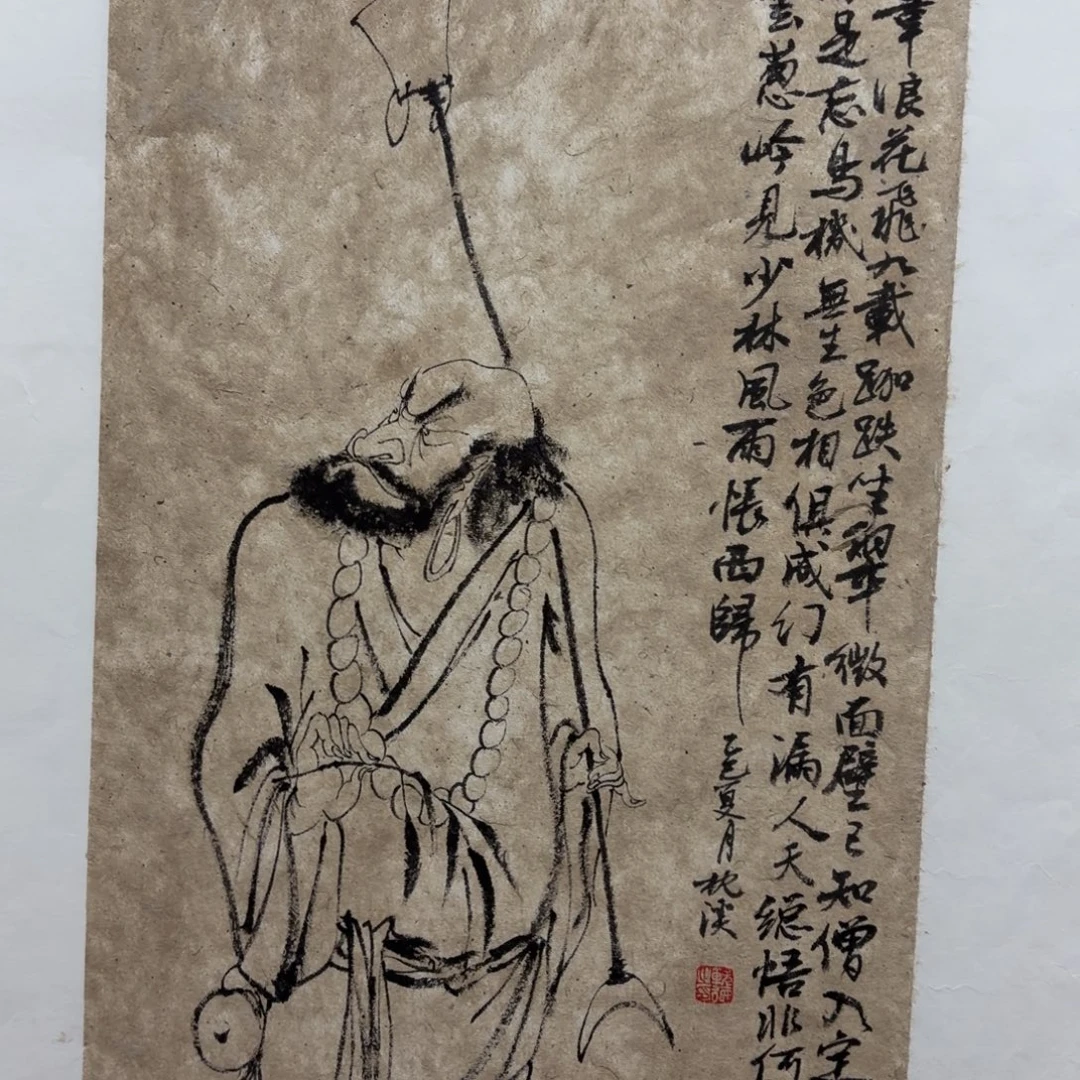 葦浪花飛九載跏趺坐翠微面壁已知僧入定
是忘鳥機無生色相俱成幻有漏人天總悟非何
蔥岭見少林風雨悵西歸
乙巳夏月枕溪